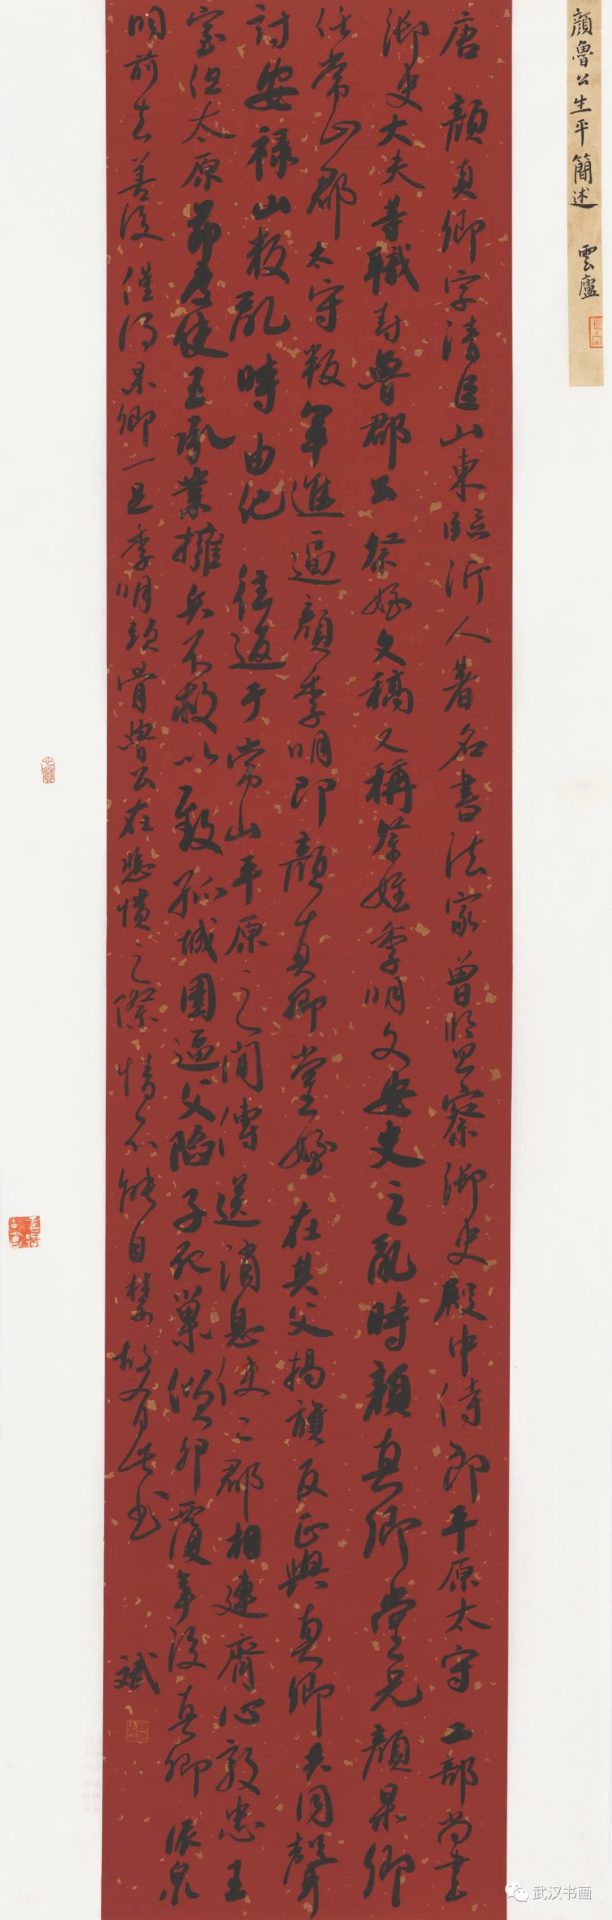 顏魯公生平簡述 雲廬
唐 顏真卿字清臣山東臨沂人著名書法家曾監察御史殿中侍郎平原太守工部尚書
御史大夫等職封魯郡公祭姪文稿又稱祭姪季明文安史之亂時顏真卿堂兄顏杲卿
任常山郡太守叛軍進逼顏季明即顏真卿堂姪在其父揭旗反正與真卿共同聲
討安祿山叛亂時由他 往返于常山平原之間傳送消息使二郡相連齊心效忠王
室但太原節度使王承業擁兵不救以致孤城圍逼父陷子死巢傾卵覆事後真卿派泉
明前去善後僅得杲卿一足季明頭骨魯公在悲憤之際情不能自禁故有此書
斌
武汉书画